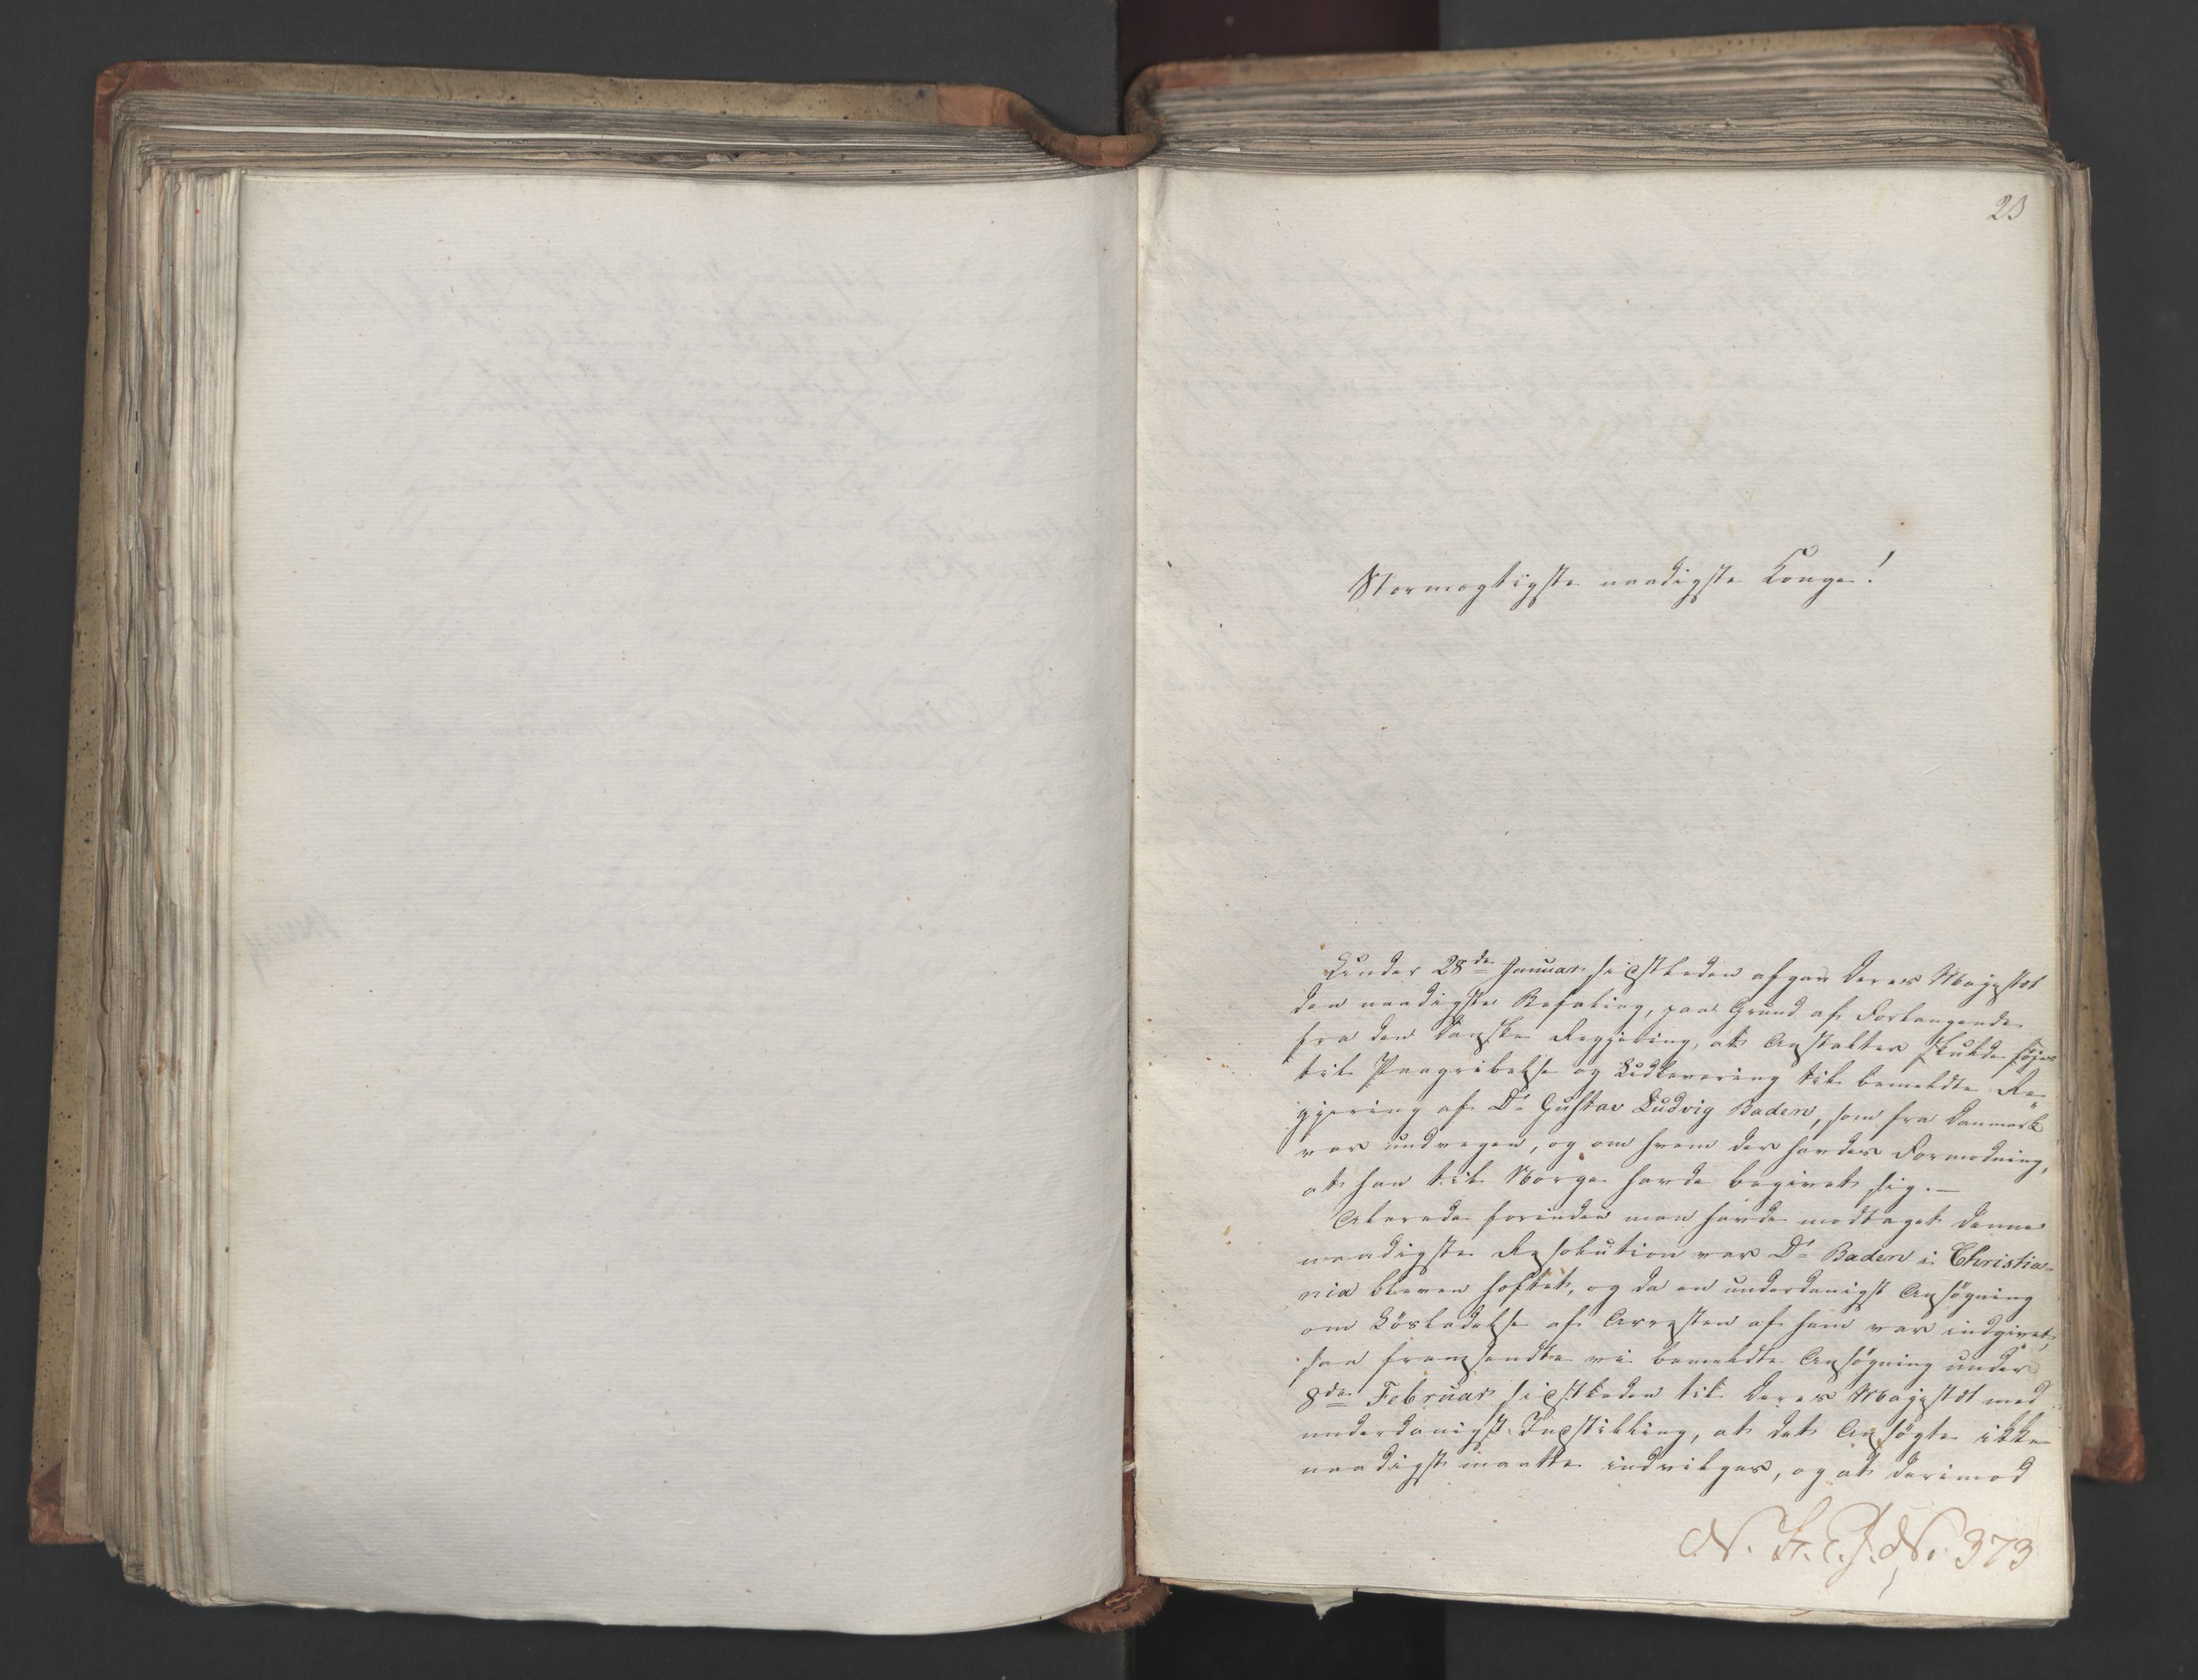 23
Stormægtigste naadigste Konge!
Under 28de Januar sidstleden afgav Deres Majestæt
den naadigste Befaling, paa Grund af Forlangende
fra den danske Regjering, at Anstalter skulde føjes
til Paagribelse og Udlevering til bemeldte Re-
gjering af Dr Gustav Ludvig Baden, som fra Danmark
var undvegen, og om hvem der havdes Formodning,
at han til Norge havde begivet sig. —
Allerede forinden man havde modtaget denne
naadigste Resolution var Dr Baden i Christia-
nia bleven heftet, og da en underdanigst Ansögning
om Lösladelse af Arresten af ham var indgivet,
saa fremsendte vi bemeldte Ansögning under
8de Februar sidstleden til Deres Majestæt med
underdanigst Indstilling, at det Ansögte ikke
naadigst maatte indvilges, og at derimod
No. 373